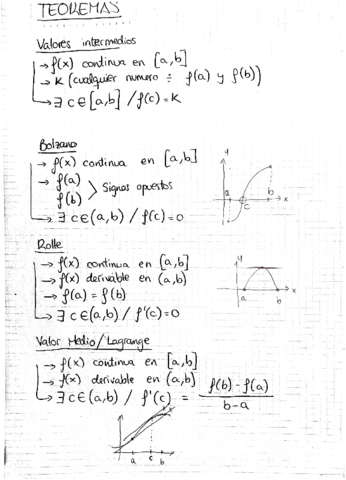 TEOREMAS
Valores intermedios
→ f(x) continua en [a,b]
→ K (cualquier numero ÷ f(a) y f(b))
→ ∃ c∈[a,b] / f(c)=K
Bolzano
→ f(x) continua en [a,b]
→ f(a)
f(b) > Signos opuestos
→ ∃ c∈(a,b) / f(c)=0
y
a
c
b
x
Rolle
→ f(x) continua en [a,b]
→ f(x) derivable en (a,b)
→ f(a) = f(b)
→ ∃ c∈(a,b) / f'(c)=0
y
a
b
x
Valor Medio/Lagrange
→ f(x) continua en [a,b]
→ f(x) derivable en (a,b)
→ ∃ c∈(a,b) / f'(c) = f(b)-f(a) / b-a
a
c
b
x